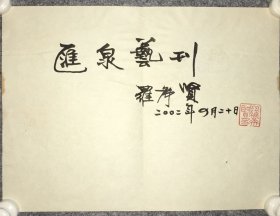 匯泉藝刊
羅孝賢
二〇〇二年四月二十日